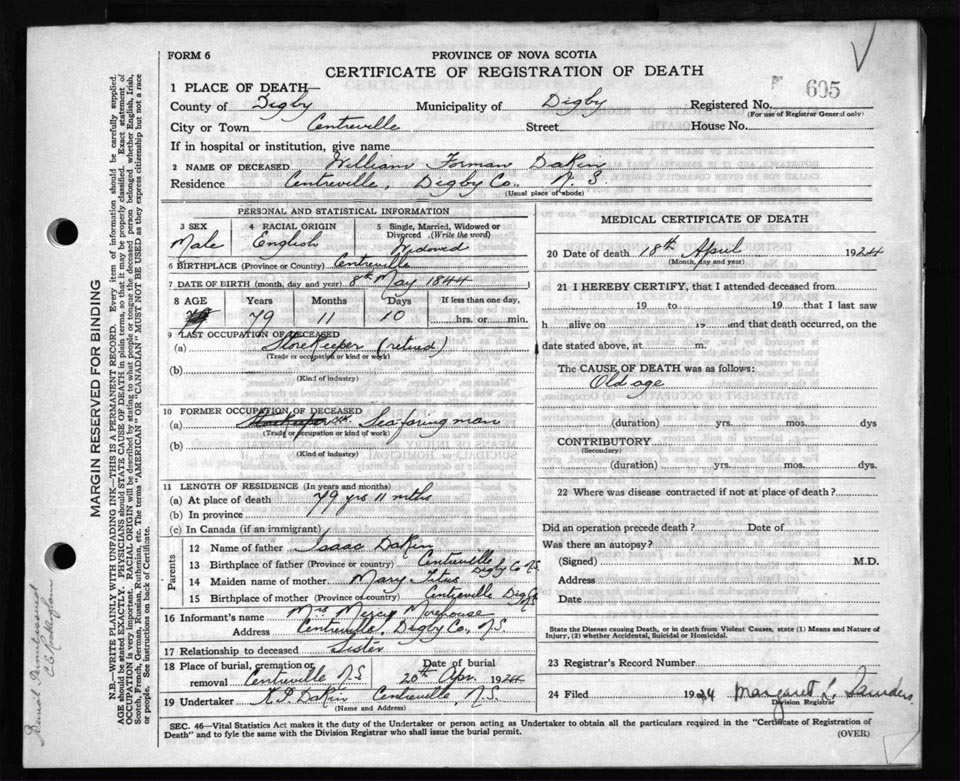 FORM 6
PROVINCE OF NOVA SCOTIA
CERTIFICATE OF REGISTRATION OF DEATH
1 PLACE OF DEATH—
605
County of Digby Municipality of Digby Registered No.
(For use of Registrar General only)
City or Town Centreville Street House No.
If in hospital or institution, give name
2 NAME OF DECEASED William Forman Dakin
Residence Centreville, Digby Co., N. S.
(Usual place of abode)
PERSONAL AND STATISTICAL INFORMATION
3 SEX 4 RACIAL ORIGIN 5 Single, Married, Widowed or Divorced (Write the word)
Male English Widowed
6 BIRTHPLACE (Province or Country) Centreville
7 DATE OF BIRTH (month, day and year) 8th May 1844
8 AGE Years Months Days If less than one day,
79 11 10 hrs. or min.
9 LAST OCCUPATION OF DECEASED
(a) Storekeeper (retired)
(Trade or occupation or kind of work)
(b)
(Kind of industry)
10 FORMER OCCUPATION OF DECEASED
(a) Seafaring man
(Trade or occupation or kind of work)
(b)
(Kind of industry)
11 LENGTH OF RESIDENCE (In years and months)
(a) At place of death 79 yrs 11 mths
(b) In province
(c) In Canada (if an immigrant)
Parents
12 Name of father Isaac Dakin
13 Birthplace of father (Province or country) Centreville Digby Co N.S.
14 Maiden name of mother Mary Titus
15 Birthplace of mother (Province or country) Centreville Digby Co N.S.
16 Informant's name Mrs Mercy Morehouse
Address Centreville, Digby Co., N.S.
17 Relationship to deceased Sister
18 Place of burial, cremation or removal Centreville N.S. Date of burial 20th Apr. 1924
19 Undertaker Dakin Centreville, N.S.
(Name and Address)
MEDICAL CERTIFICATE OF DEATH
20 Date of death 18th April 1924
(Month, day and year)
21 I HEREBY CERTIFY, that I attended deceased from
19 to 19 that I last saw
h alive on 19 and that death occurred, on the
date stated above, at m.
The CAUSE OF DEATH was as follows:
Old age
(duration) yrs. mos. dys
CONTRIBUTORY
(Secondary)
(duration) yrs. mos. dys.
22 Where was disease contracted if not at place of death?
Did an operation precede death? Date of
Was there an autopsy?
(Signed) M.D.
Address
Date
State the Disease causing Death, or in death from Violent Causes, state (1) Means and Nature of Injury, (2) whether Accidental, Suicidal or Homicidal.
23 Registrar's Record Number
24 Filed 1924 Margaret L. Saunders
Division Registrar
SEC. 46—Vital Statistics Act makes it the duty of the Undertaker or person acting as Undertaker to obtain all the particulars required in the "Certificate of Registration of
Death" and to fyle the same with the Division Registrar who shall issue the burial permit.
(OVER)
MARGIN RESERVED FOR BINDING
N.B.—WRITE PLAINLY WITH UNFADING INK—THIS IS A PERMANENT RECORD. Every item of information should be carefully supplied.
AGE should be stated EXACTLY. PHYSICIANS should STATE CAUSE OF DEATH in plain terms, so that it may be properly classified. Exact statement of
OCCUPATION is very important. RACIAL ORIGIN will be described by stating to what people or tongue the deceased person belonged whether English, Irish,
Scotch, French, German, Russian, Ruthenian, etc. The terms "AMERICAN" OR "CANADIAN" MUST NOT BE USED as they express citizenship but not a race
or people. See instructions on back of Certificate.
Burial Permit issued